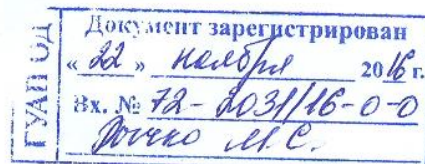 ГУАП ОД
Документ зарегистрирован
«22» ноября 2016 г.
Вх. № 72-2031/16-0-0
М.С.